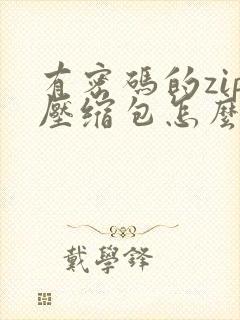 有密碼的zip
壓缩包怎麼
戴學鋒